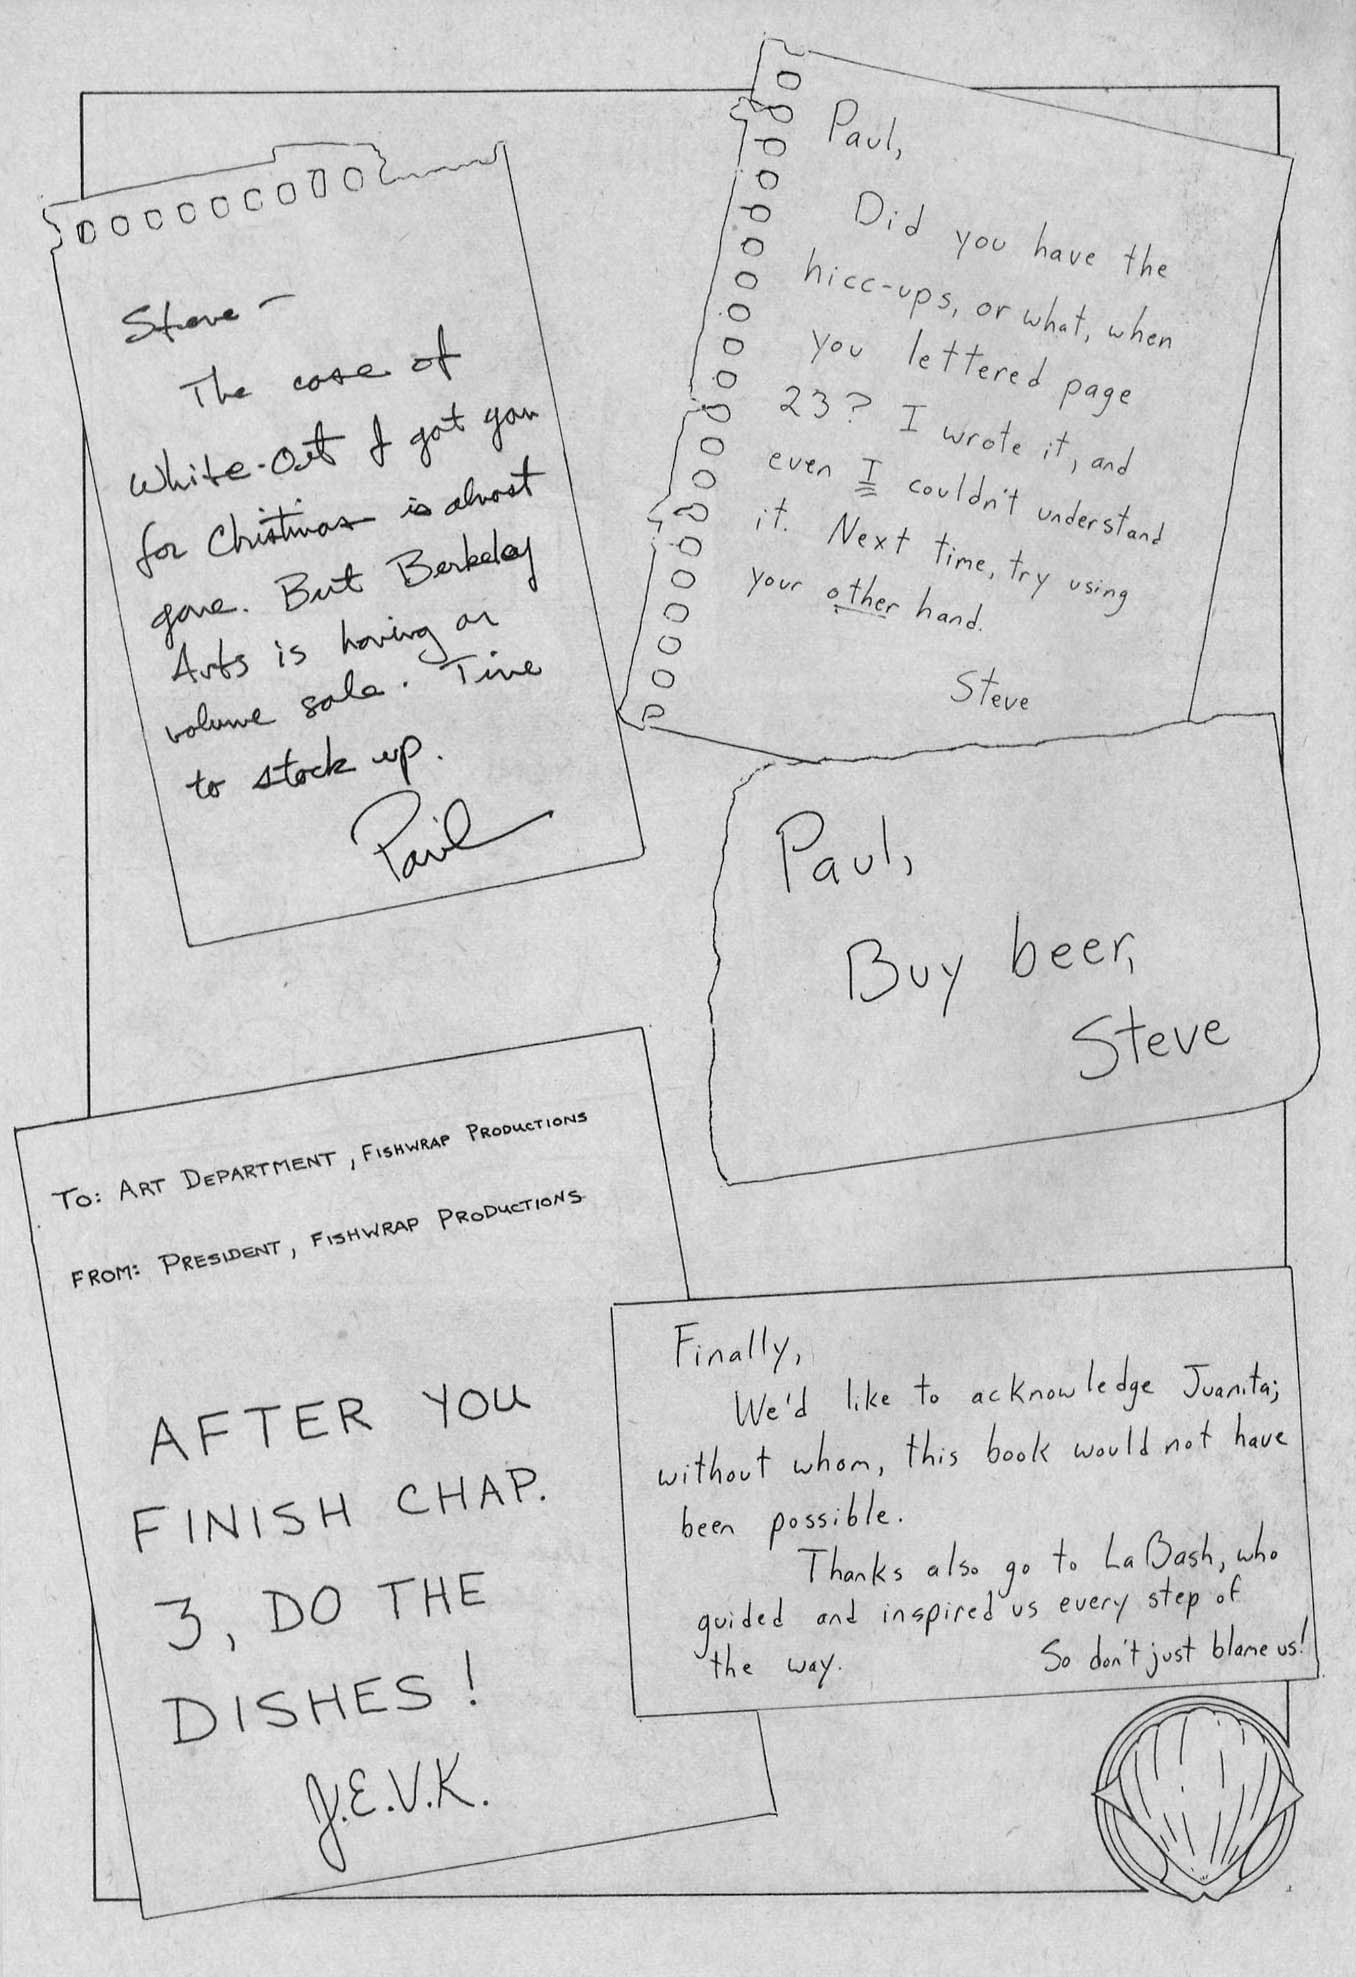 Steve —
The case of
White-Out I got you
for Christmas is almost
gone. But Berkeley
Arts is having an
volume sale. Time
to stock up.
Paul
Paul,
Did you have the
hicc-ups, or what, when
you lettered page
23? I wrote it, and
even I couldn't understand
it. Next time, try using
your other hand.
Steve
Paul,
Buy beer,
Steve
TO: ART DEPARTMENT, FISHWRAP PRODUCTIONS
FROM: PRESIDENT, FISHWRAP PRODUCTIONS
AFTER YOU
FINISH CHAP.
3, DO THE
DISHES!
J.E.V.K.
Finally,
We'd like to acknowledge Juanita;
without whom, this book would not have
been possible.
Thanks also go to LaBash, who
guided and inspired us every step of
the way. So don't just blame us!